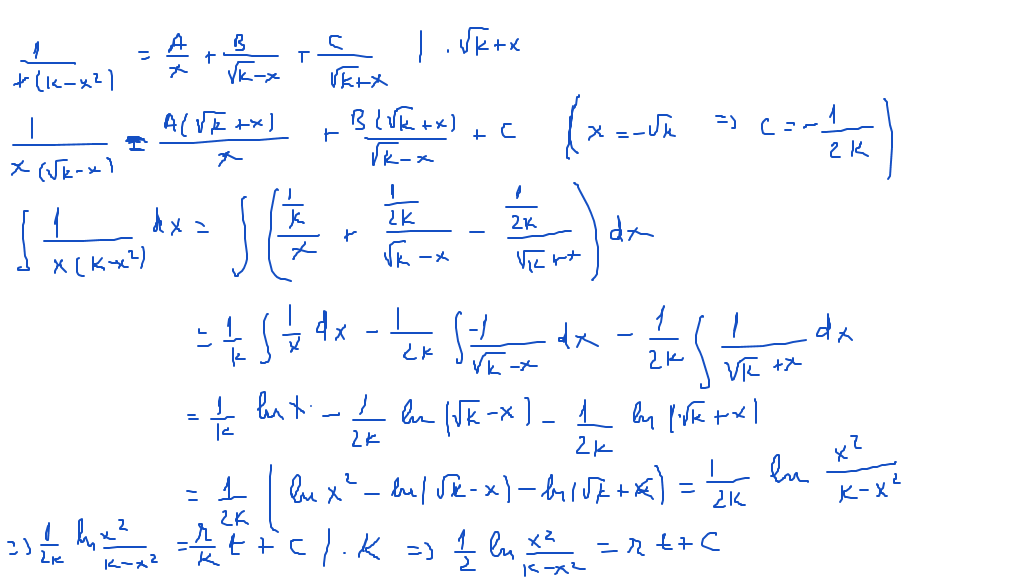 1/(x(k-x²)) = A/x + B/(√k-x) + C/(√k+x) | · √k+x
1/(x(√k-x)) = A(√k+x)/x + B(√k+x)/(√k-x) + C (x = -√k => C = -1/(2k))
∫ 1/(x(k-x²)) dx = ∫ ((1/k)/x + (1/2k)/(√k-x) - (1/2k)/(√k+x)) dx
= 1/k ∫ 1/x dx - 1/2k ∫ -1/(√k-x) dx - 1/2k ∫ 1/(√k+x) dx
= 1/k ln x - 1/2k ln |√k-x| - 1/2k ln |√k+x|
= 1/2k [ln x² - ln|√k-x| - ln|√k+x|) = 1/2k ln x²/(k-x²)
=> 1/2k ln x²/(k-x²) = r/k t + C | · K => 1/2 ln x²/(k-x²) = r t + C